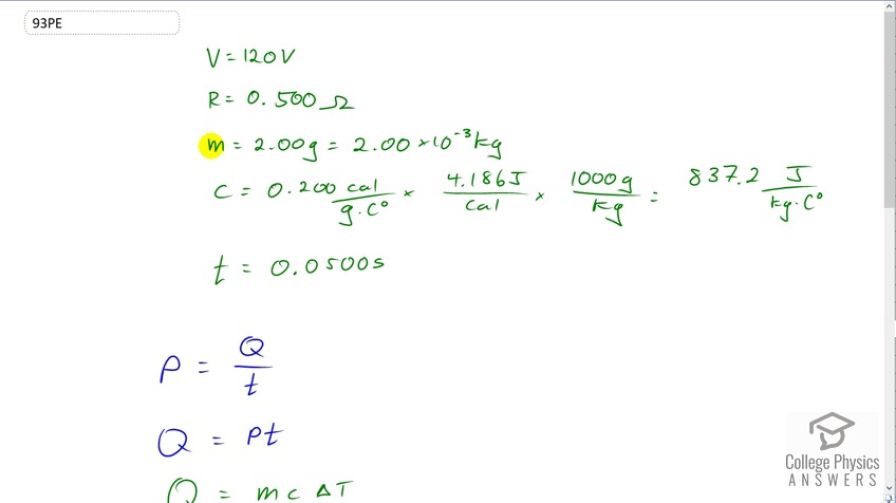 93PE
V = 120V
R = 0.500 Ω
m = 2.00g = 2.00 × 10⁻³ kg
c = 0.200 cal/g·C° × 4.186J/cal × 1000g/kg = 837.2 J/kg·C°
t = 0.0500s
P = Q/t
Q = Pt
Q = mcΔT
College Physics
ANSWERS